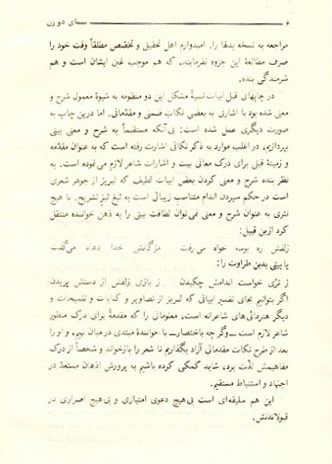 ۶
مراجعه به نسخه بدلها را. امیدوارم اهل تحقیق و تخصص مطلقاً وقت خود را
صرف مطالعهٔ این جزوه نفرمایند، که هم موجب غبن ایشان است و هم
شرمندگی بنده.
در چاپهای قبل ابیات نسبةً مشکل این دو منظومه به شیوهٔ معمول شرح و
معنی شده بود با اشارتی به بعضی نکات ضمنی و مقدماتی. اما درین چاپ به
صورت دیگری عمل شده است: بی آنکه مستقیماً به شرح و معنی بیتی
بپردازیم، در اغلب موارد به ذکر نکاتی اشارت رفته است که به عنوان مقدمه
و زمینهٔ قبلی برای درک معانی بیت و اشارات شاعر لازم می‌نموده است. به
نظر بنده شرح و معنی کردن بعض ابیات لطیف که لبریز از جوهر شعری
است در حکم سپردن اندام متناسب زیبائی است به تیغ تیز تشریح. با هیچ
نثری به عنوان شرح و معنی نمی‌توان لطافت بیتی را به ذهن خواننده منتقل
کرد ازین قبیل:
زلفش ره بوسه خواه می‌رفت مژگانش خدا دهاد می‌گفت
یا بیتی بدین طراوت را:
ز تری خواست اندامش چکیدن ز بازی زلفش از دستش پریدن
اگر بتوانیم بجای تفسیر ابیاتی که لبریز از تصاویر و کنایات و تلمیحات و
دیگر هنرمائی‌های شاعرانه است، معلوماتی را که مقدمةً برای درک منظور
شاعر لازم است ــ وگر چه باختصار ــ با خوانندهٔ مبتدی در میان نهیم، و او را
بعد از طرح نکات مقدماتی آزاد بگذاریم تا شعر را بازخواند و شخصاً از درک
مفاهیمش لذت برد، شاید کمکی کرده باشیم به پرورش اذهان مستعد در
اجتهاد و استنباط مستقیم.
این هم سلیقه‌ای است بی هیچ دعوی امتیازی و بی هیچ اصراری در
قبولاندنش.